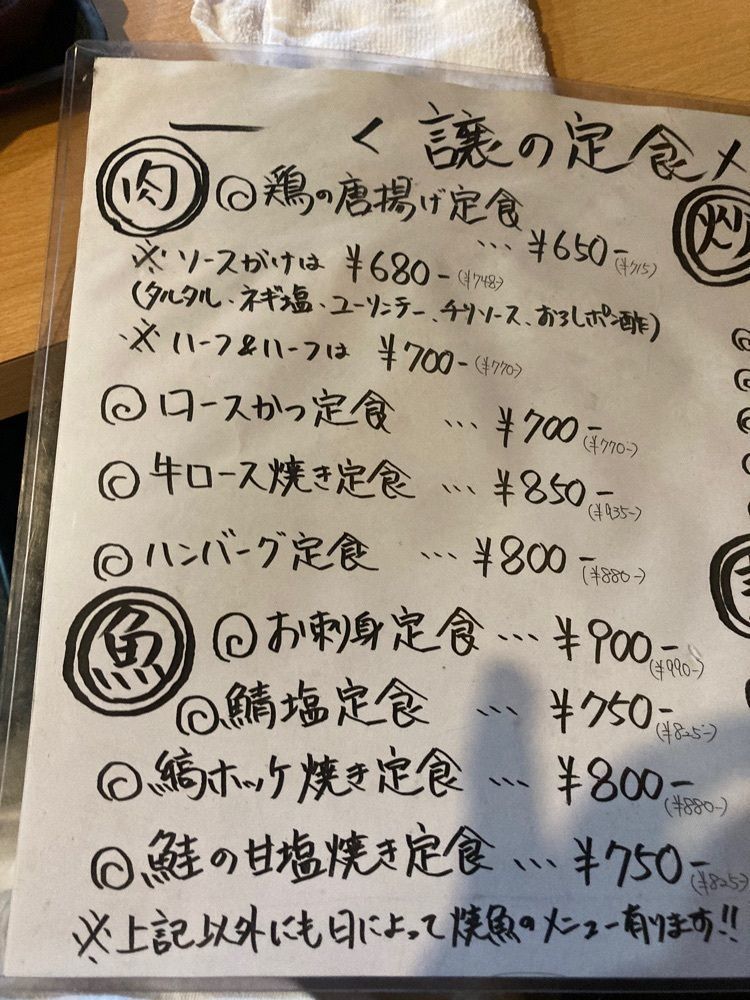 一 く 譲の定食メ
肉
◎鶏の唐揚げ定食
… ¥650-(¥715)
※ソースがけは ¥680-(¥748)
(タルタル、ネギ塩、ユーリンチー、チリソース、おろしポン酢)
※ハーフ&ハーフは ¥700-(¥770)
◎ロースかつ定食 … ¥700-(¥770-)
◎牛ロース焼き定食 … ¥850-(¥935-)
◎ハンバーグ定食 … ¥800-(¥880-)
魚
◎お刺身定食 … ¥900-(¥990-)
◎鯖塩定食 … ¥750-(¥825-)
◎縞ホッケ焼き定食 … ¥800-(¥880-)
◎鮭の甘塩焼き定食 … ¥750-(¥825-)
※上記以外にも日によって焼魚のメニュー有ります!!
炒